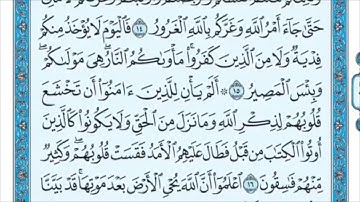 حَتَّىٰ جَآءَ أَمۡرُ ٱللَّهِ وَغَرَّكُم بِٱللَّهِ ٱلۡغَرُورُ ١٤ فَٱلۡيَوۡمَ لَا يُؤۡخَذُ مِنكُمۡ
فِدۡيَةٞ وَلَا مِنَ ٱلَّذِينَ كَفَرُواْۚ مَأۡوَىٰكُمُ ٱلنَّارُۖ هِيَ مَوۡلَىٰكُمۡۖ
وَبِئۡسَ ٱلۡمَصِيرُ ١٥ ۞ أَلَمۡ يَأۡنِ لِلَّذِينَ ءَامَنُوٓاْ أَن تَخۡشَعَ
قُلُوبُهُمۡ لِذِكۡرِ ٱللَّهِ وَمَا نَزَلَ مِنَ ٱلۡحَقِّ وَلَا يَكُونُواْ كَٱلَّذِينَ
أُوتُواْ ٱلۡكِتَٰبَ مِن قَبۡلُ فَطَالَ عَلَيۡهِمُ ٱلۡأَمَدُ فَقَسَتۡ قُلُوبُهُمۡۖ وَكَثِيرٞ
مِّنۡهُمۡ فَٰسِقُونَ ١٦ ٱعۡلَمُوٓاْ أَنَّ ٱللَّهَ يُحۡيِ ٱلۡأَرۡضَ بَعۡدَ مَوۡتِهَاۚ قَدۡ بَيَّنَّا